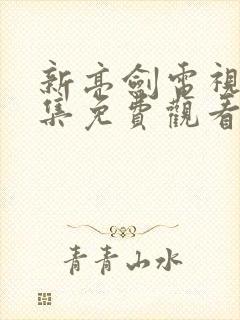 新亮劍電視
集免費觀看
青青山水